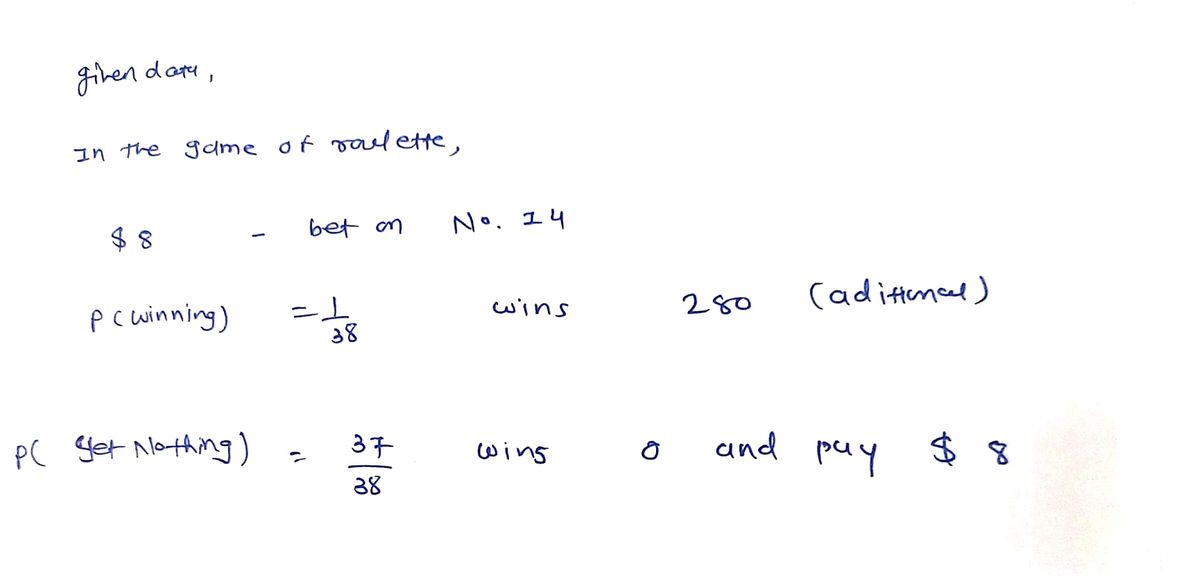 given data,
In the game of roulette,
$ 8 - bet on No. 14
P(winning) = 1/38 wins 280 (aditional)
P( Get Nothing) = 37/38 wins 0 and pay $ 8